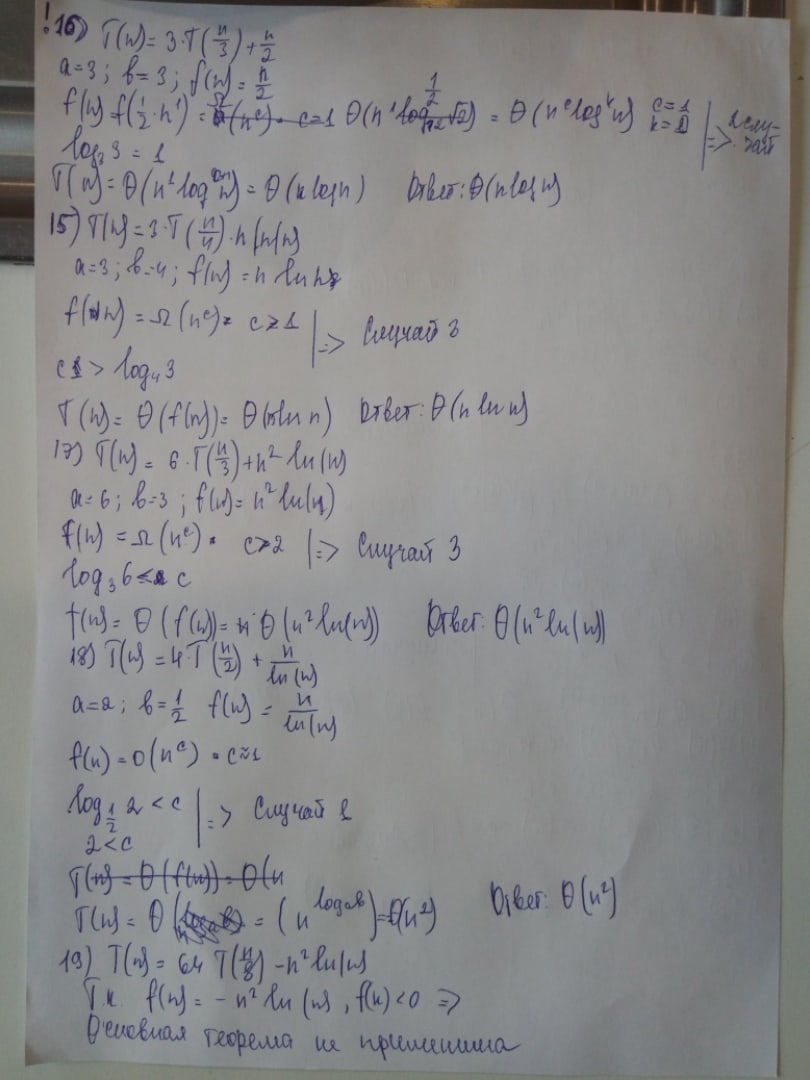 !16) T(n) = 3·T(n/3) + n/2
a=3; b=3; f(n) = n/2
f(n) = f(1/2·n^1) = Θ(n^1 log) = Θ(n^c log^k n) c=1 => 2 случай
log₃ 3 = 1
T(n) = Θ(n^1 log n) = Θ(n log n) Ответ: Θ(n log n)
15) T(n) = 3·T(n/4)·n ln(n)
a=3; b=4; f(n) = n ln n
f(n) = Ω(n^c) c≥1 | => Случай 3
c > log₄3
T(n) = Θ(f(n)) = Θ(n ln n) Ответ: Θ(n ln n)
17) T(n) = 6·T(n/3) + n² ln(n)
a=6; b=3; f(n) = n² ln(n)
f(n) = Ω(n^c) · c>2 | => Случай 3
log₃ 6 < c
f(n) = Θ(f(n)) = Θ(n² ln(n)) Ответ: Θ(n² ln(n))
18) T(n) = 4·T(n/2) + n/ln(n)
a=2; b=1/2 f(n) = n/ln(n)
f(n) = O(n^c) · c≈1
log_{1/2} 2 < c | => Случай 1
2 < c
T(n) = Θ(f(n)) = Θ(n
T(n) = Θ = (n^{log_a b}) = Θ(n²) Ответ: Θ(n²)
19) T(n) = 64 T(n/8) - n² ln(n)
Т.к. f(n) = - n² ln(n), f(n)<0 =>
Основная теорема не применима